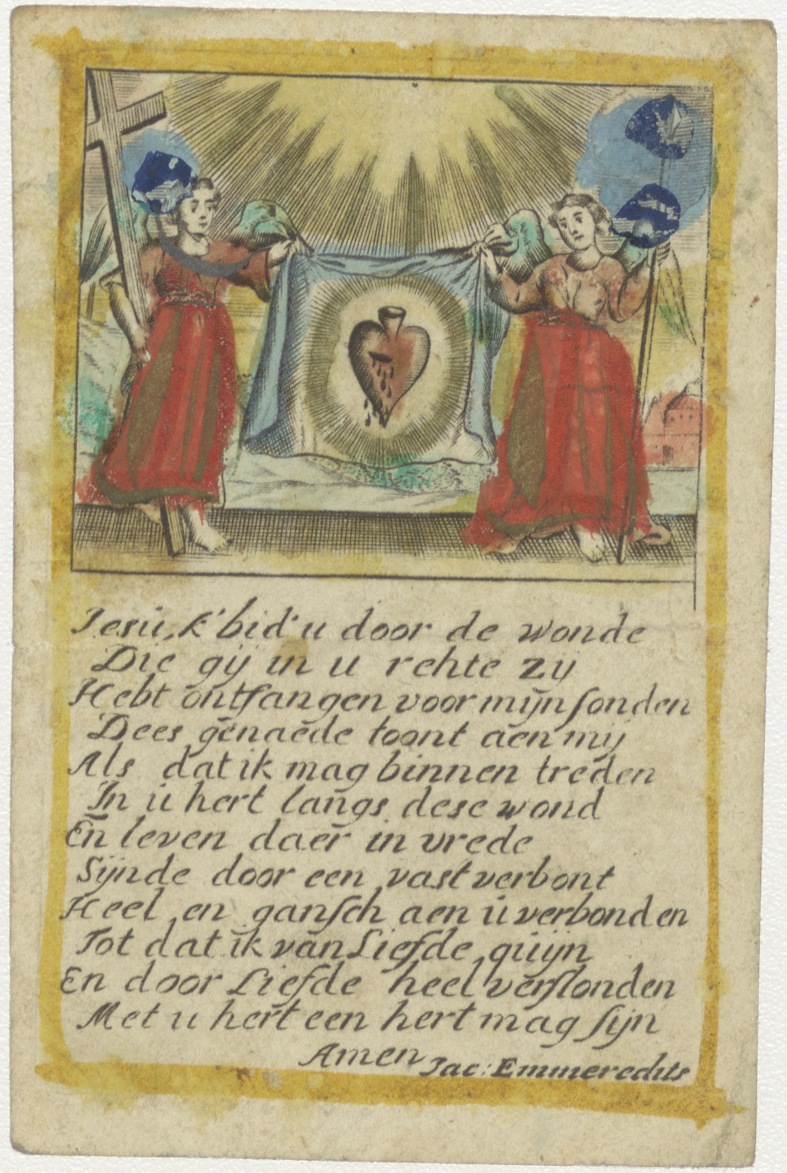 Jesu, k'bid'u door de wonde
Die gij in u rehte zy
Hebt ontfangen voor mijn sonden
Dees genaede toont aen mij
Als dat ik mag binnen treden
In u hert langs dese wond
En leven daer in vrede
Sijnde door een vast verbont
Heel en gansch aen u verbonden
Tot dat ik van Liefde quijn
En door Liefde heel verslonden
Met u hert een hert mag sijn
Amen
Jac: Emmerechts